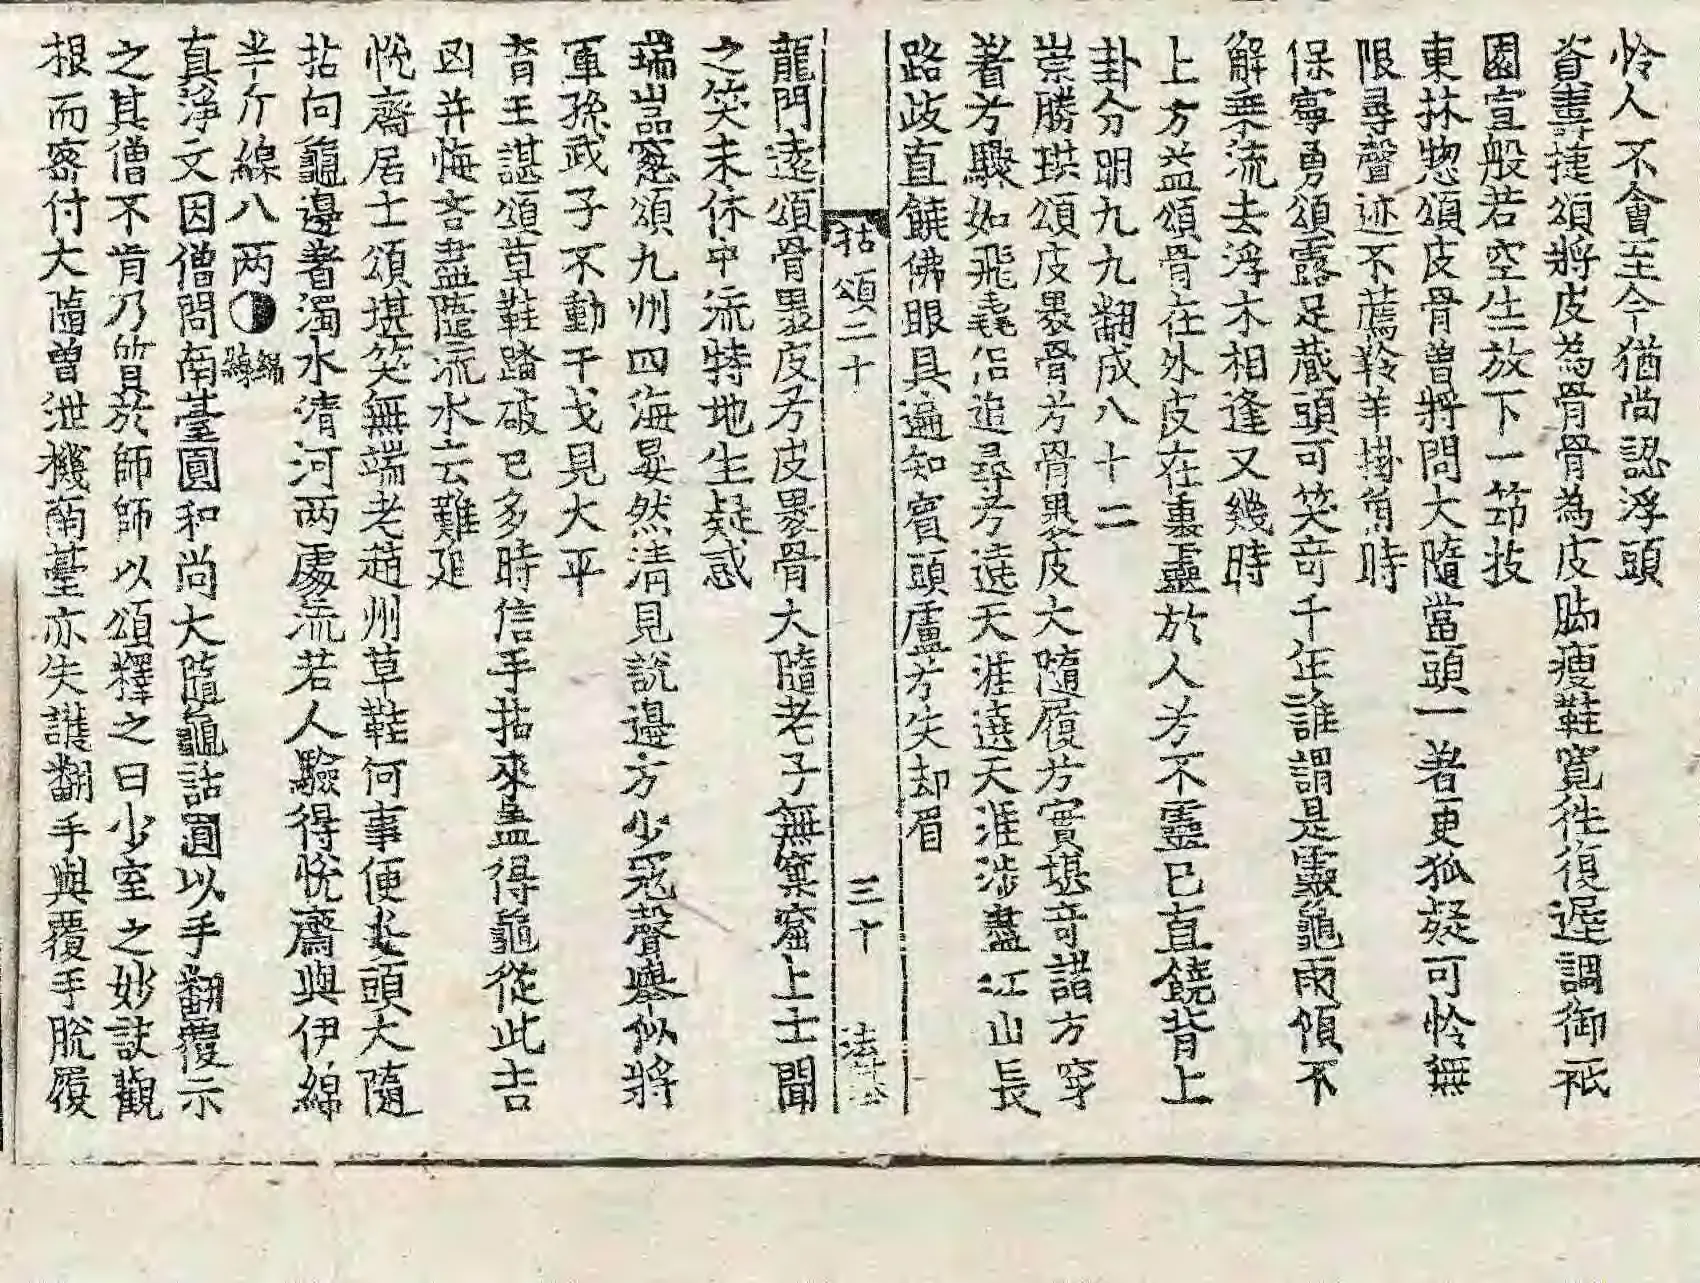 怜人不會至今猶尚認浮頭
資壽捷頌將皮為骨骨為皮脚瘦鞋寬往復遲調御祇
園宣般若空生一放下一茆技
東林惣頌皮骨曽將問大隨當頭一著更狐疑可怜無
限尋聲迹不薦羚羊掛角時
保寧勇頌露足蔵頭可笑竒千年誰謂是靈龜雨傾不
解乗流去浮木相逢又幾時
上方益頌骨在外皮在裏靈於人芳不靈已直饒背上
卦分明九九翻成八十二
崇勝珙頌皮褁骨芳骨褁皮大隨履芳實堪竒諸方穿
著芳驟如飛毳侶追尋芳遶天涯遶天涯涉盡江山長
路歧直饒佛眼具遍知賓頭盧芳失却眉
拈頌二十　三十　法
龍門遠頌骨褁皮芳皮褁骨大隨老子無窠窟上士聞
之笑未休中流特地生疑惑
瑞嵓愻頌九州四海晏然清見說邊方少冦聲擧似將
軍孫武子不動干戈見大平
育王諶頌草鞋踏破已多時信手拈來盖得龜從此吉
凶并悔吝盡隨流水去難追
恱齋居士頌堪笑無端老趙州草鞋何事便安頭大隨
拈向龜邊著濁水清河兩處流若人驗得恱齋與伊綿
半斤線八兩◑
真淨文因僧問南臺圓和尚大隨龜話圓以手翻覆示
之其僧不肯乃質於師師以頌釋之曰少室之妙訣觀
根而密付大隨曽泄機南臺亦失護翻手與覆手脫履